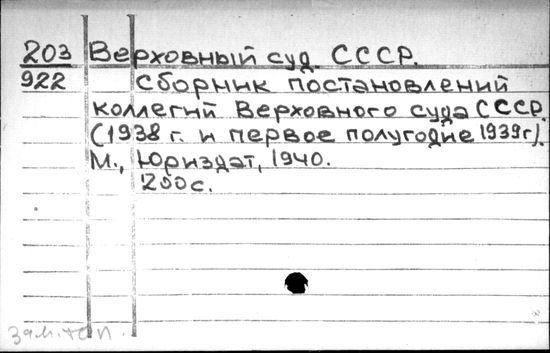 203 Верховный суд. СССР.
922 Сборник постановлений
коллегий Верховного суда СССР.
(1938 г. и первое полугодие 1939г).
М., Юриздат, 1940.
200с.